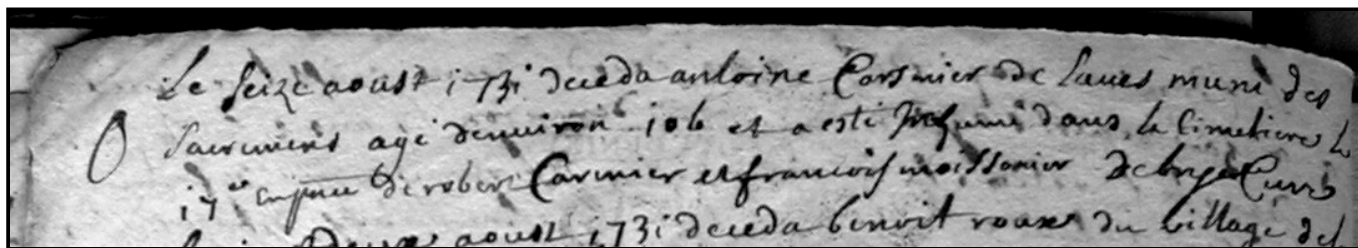 Le seize aoust 1731 deceda antoine Carsmier de Laves muni des
O sacremens agé denuiron 106 et a esté inhumé dans le Cimetiere le
17 en pnce de robert Carmier et francois moissonier
aoust 1731 deceda benoit roux du village de